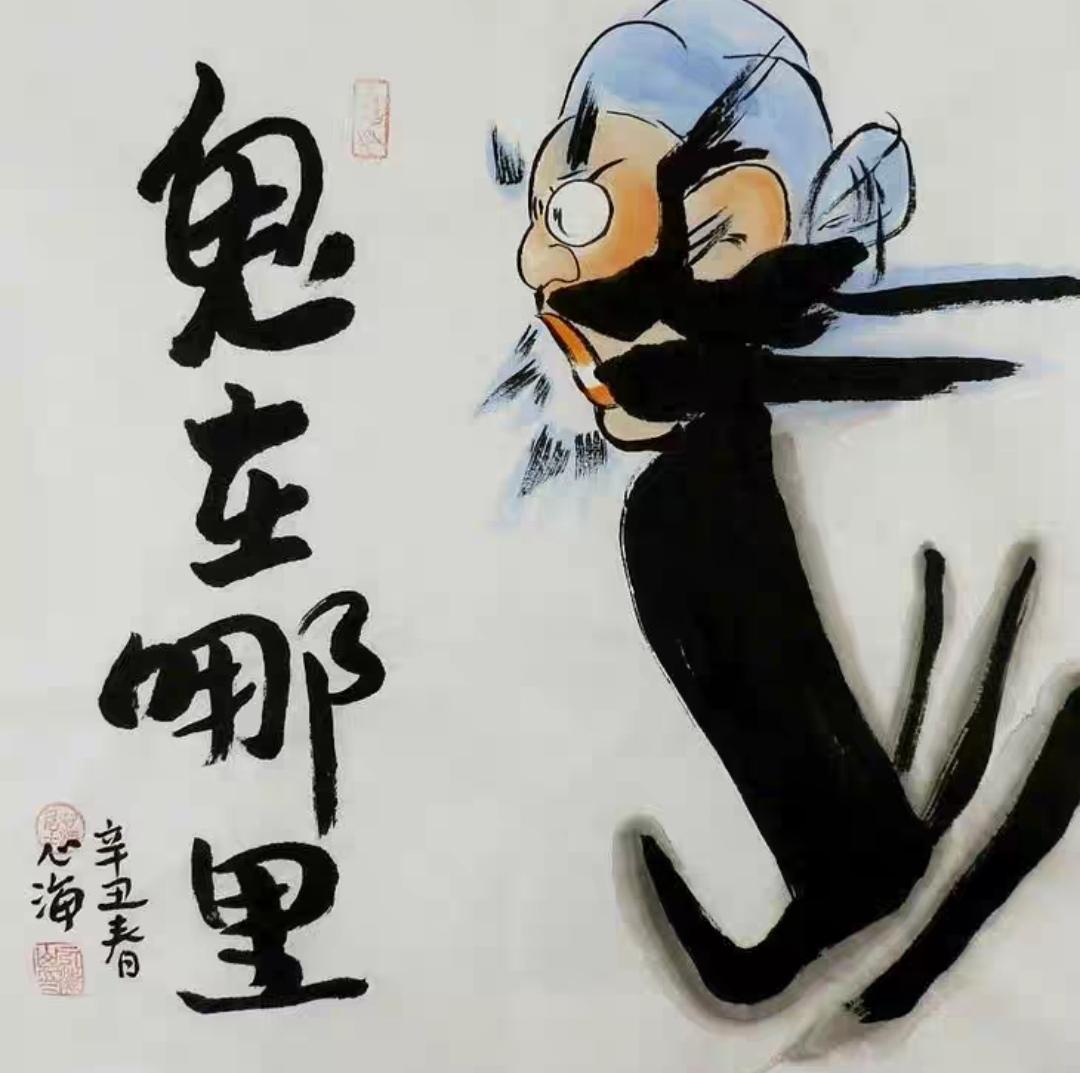 鬼在哪里
辛丑春
心海